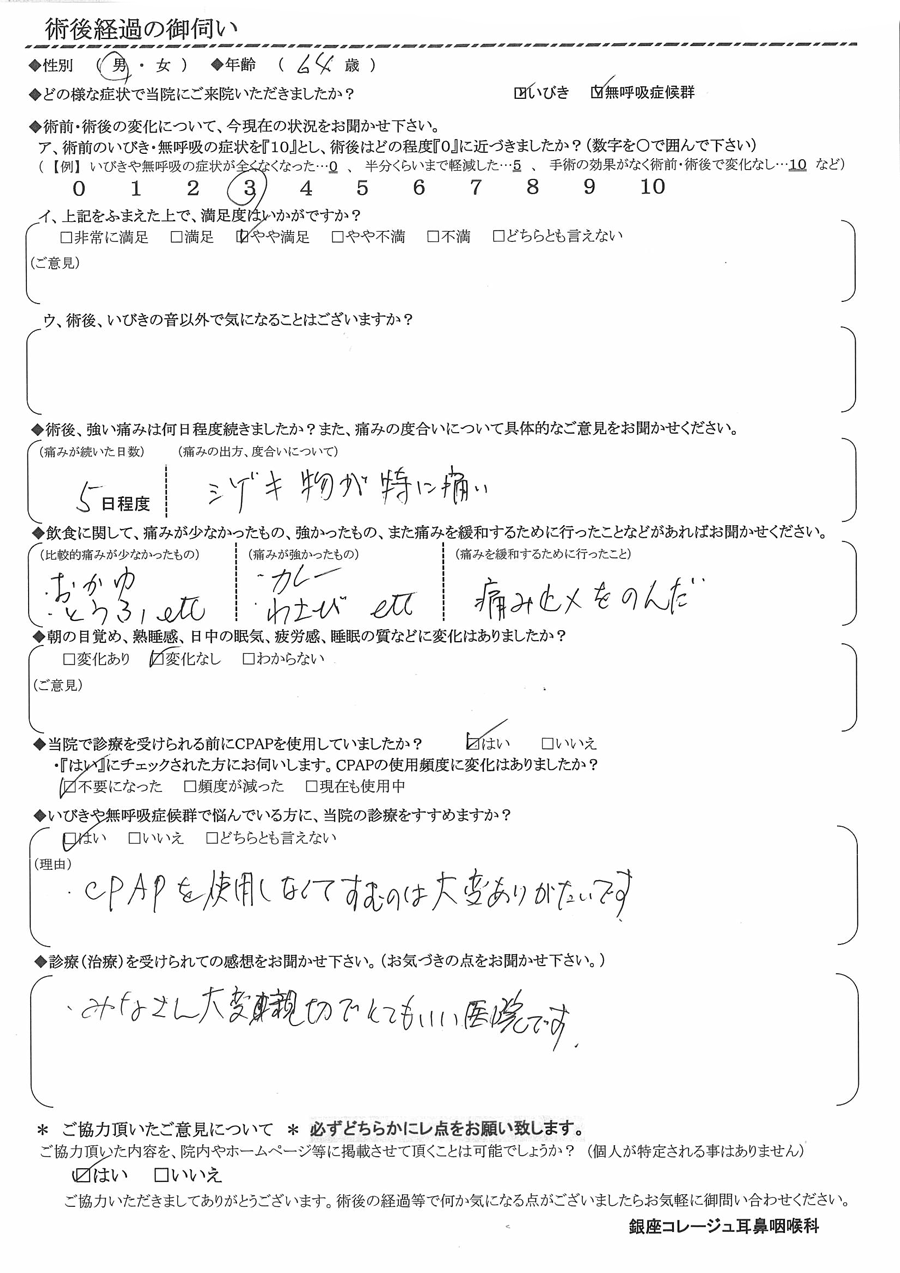 術後経過の御伺い
◆性別 （ 男 ・ 女 ） ◆年齢 （ 64 歳 ）
◆どの様な症状で当院にご来院いただきましたか？ ☑いびき ☑無呼吸症候群
◆術前・術後の変化について、今現在の状況をお聞かせ下さい。
ア、術前のいびき・無呼吸の症状を『10』とし、術後はどの程度『0』に近づきましたか？（数字を〇で囲んで下さい）
（ 【例】 いびきや無呼吸の症状が全くなくなった…0 、 半分くらいまで軽減した…5 、 手術の効果がなく術前・術後で変化なし…10 など）
0 1 2 3 4 5 6 7 8 9 10
イ、上記をふまえた上で、満足度はいかがですか？
□非常に満足 □満足 ☑やや満足 □やや不満 □不満 □どちらとも言えない
（ご意見）
ウ、術後、いびきの音以外で気になることはございますか？
◆術後、強い痛みは何日程度続きましたか？また、痛みの度合いについて具体的なご意見をお聞かせください。
（痛みが続いた日数） （痛みの出方、度合いについて）
5日程度 シゲキ物が特に痛い
◆飲食に関して、痛みが少なかったもの、強かったもの、また痛みを緩和するために行ったことなどがあればお聞かせください。
（比較的痛みが少なかったもの） （痛みが強かったもの） （痛みを緩和するために行ったこと）
・おかゆ ・カレー 痛み止メをのんだ
・とうふ, etc ・わさび etc
◆朝の目覚め、熟睡感、日中の眠気、疲労感、睡眠の質などに変化はありましたか？
□変化あり ☑変化なし □わからない
（ご意見）
◆当院で診療を受けられる前にCPAPを使用していましたか？ ☑はい □いいえ
・『はい』にチェックされた方にお伺いします。CPAPの使用頻度に変化はありましたか？
☑不要になった □頻度が減った □現在も使用中
◆いびきや無呼吸症候群で悩んでいる方に、当院の診療をすすめますか？
☑はい □いいえ □どちらとも言えない
（理由）
・CPAPを使用しなくてすむのは大変ありがたいです.
◆診療（治療）を受けられての感想をお聞かせ下さい。（お気づきの点をお聞かせ下さい。）
・みなさん大変親切でとてもいい医院です.
＊ ご協力頂いたご意見について ＊ 必ずどちらかにレ点をお願い致します。
ご協力頂いた内容を、院内やホームページ等に掲載させて頂くことは可能でしょうか？ （個人が特定される事はありません）
☑はい □いいえ
ご協力いただきましてありがとうございます。術後の経過等で何か気になる点がございましたらお気軽に御問い合わせください。
銀座コレージュ耳鼻咽喉科